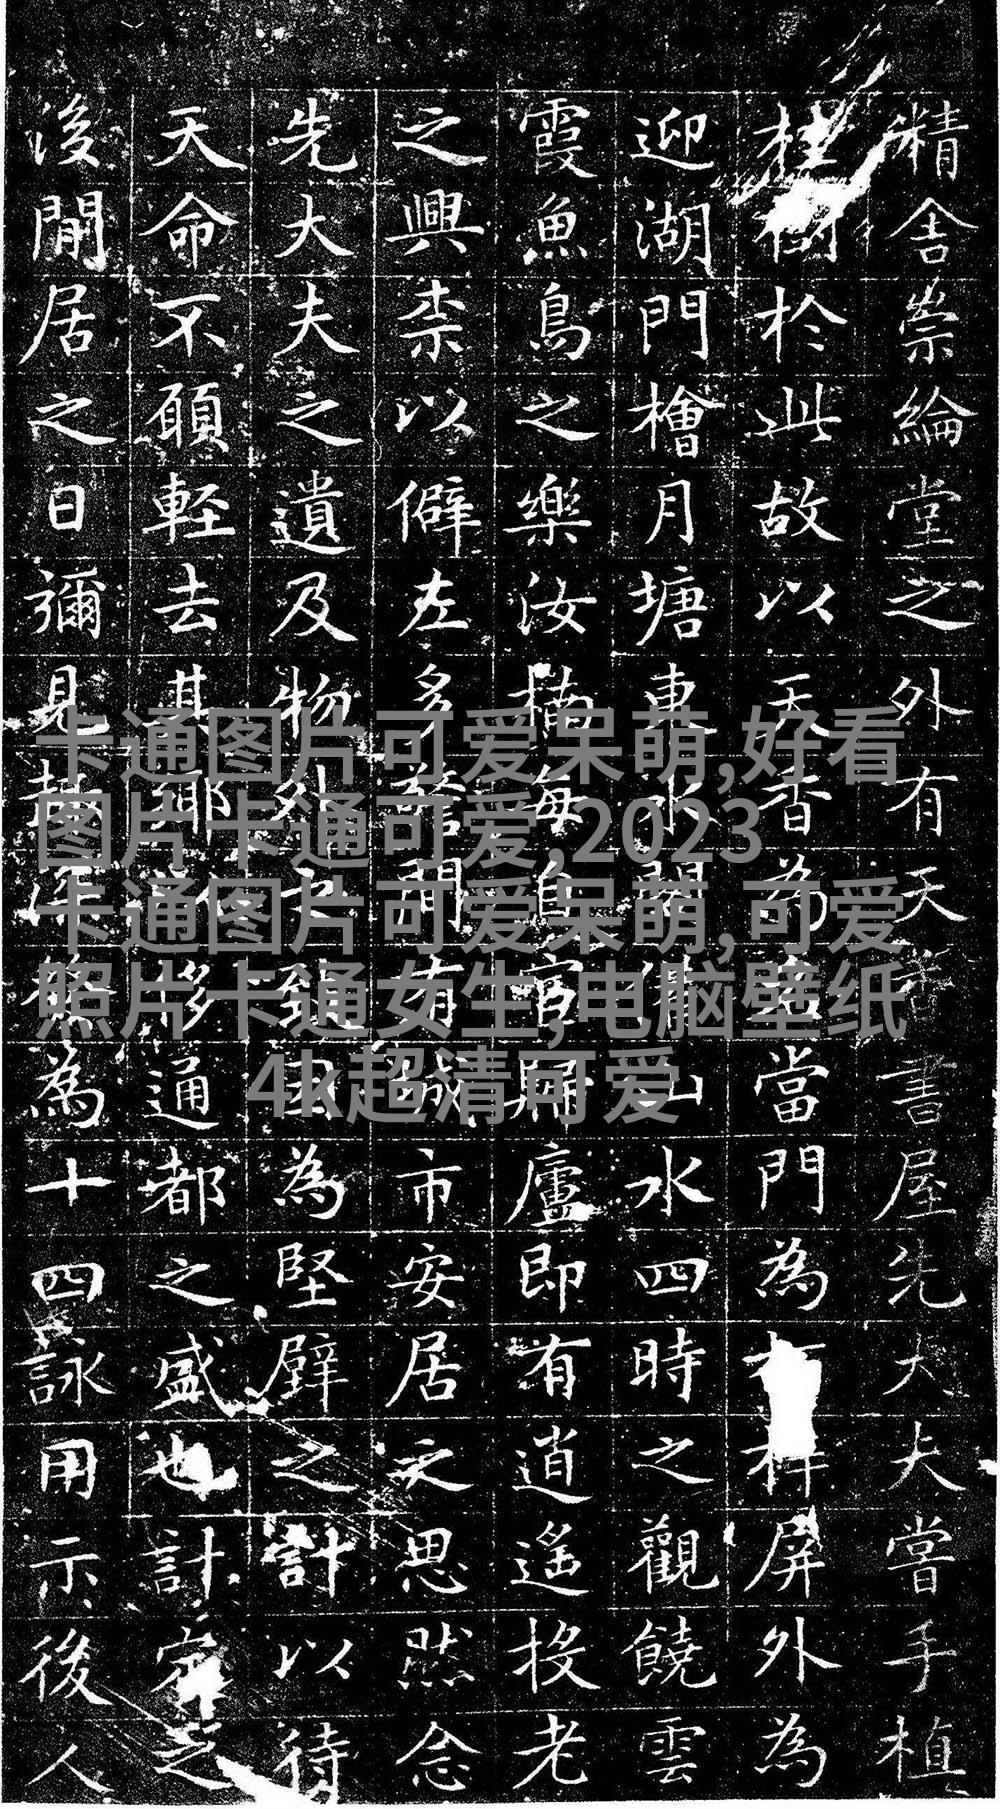 精舍崇綸堂之外有天香書屋先大夫嘗手植
桂樹於此故以天香為當門為屏外為
迎湖門檜月塘東水關山水四時之觀饒雲
霞魚鳥之樂汝楠每自官歸廬即有逍遙投老
之興柰以僻左多間有城市安居之思然念
先大夫之遺及物外為堅壁之計以待
天命不願輕去其鄉移通都之盛也計定之
後閒居之日彌見深為十四詠用示後人
卡通图片可爱呆萌,好看
图片卡通可爱,2023
卡通图片可爱呆萌,可爱
照片卡通女生,电脑壁纸
4k超清可爱